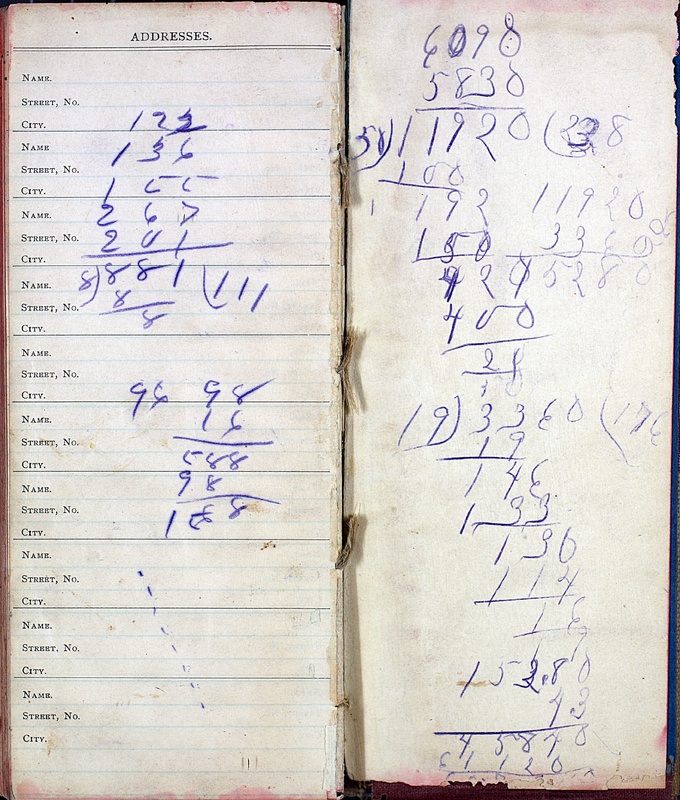 ADDRESSES.
NAME.
STREET, NO.
CITY. 123
NAME 136
STREET, NO.
CITY. 155
NAME. 267
STREET, NO. 201
CITY.
NAME. 8)881(111
STREET, NO. 8
CITY. 8
NAME.
STREET, NO.
CITY. 96 98
NAME. 16
STREET, NO.
CITY. 588
NAME. 98
STREET, NO.
CITY. 1568
NAME.
STREET, NO.
CITY.
NAME.
STREET, NO.
CITY.
NAME.
STREET, NO.
CITY.
6090
5830
50)11920(238
100
192 11920
150 3360
420 5280
400
20
19)3360(176
19
146
133
130
114
16
15280
43
45840
61120